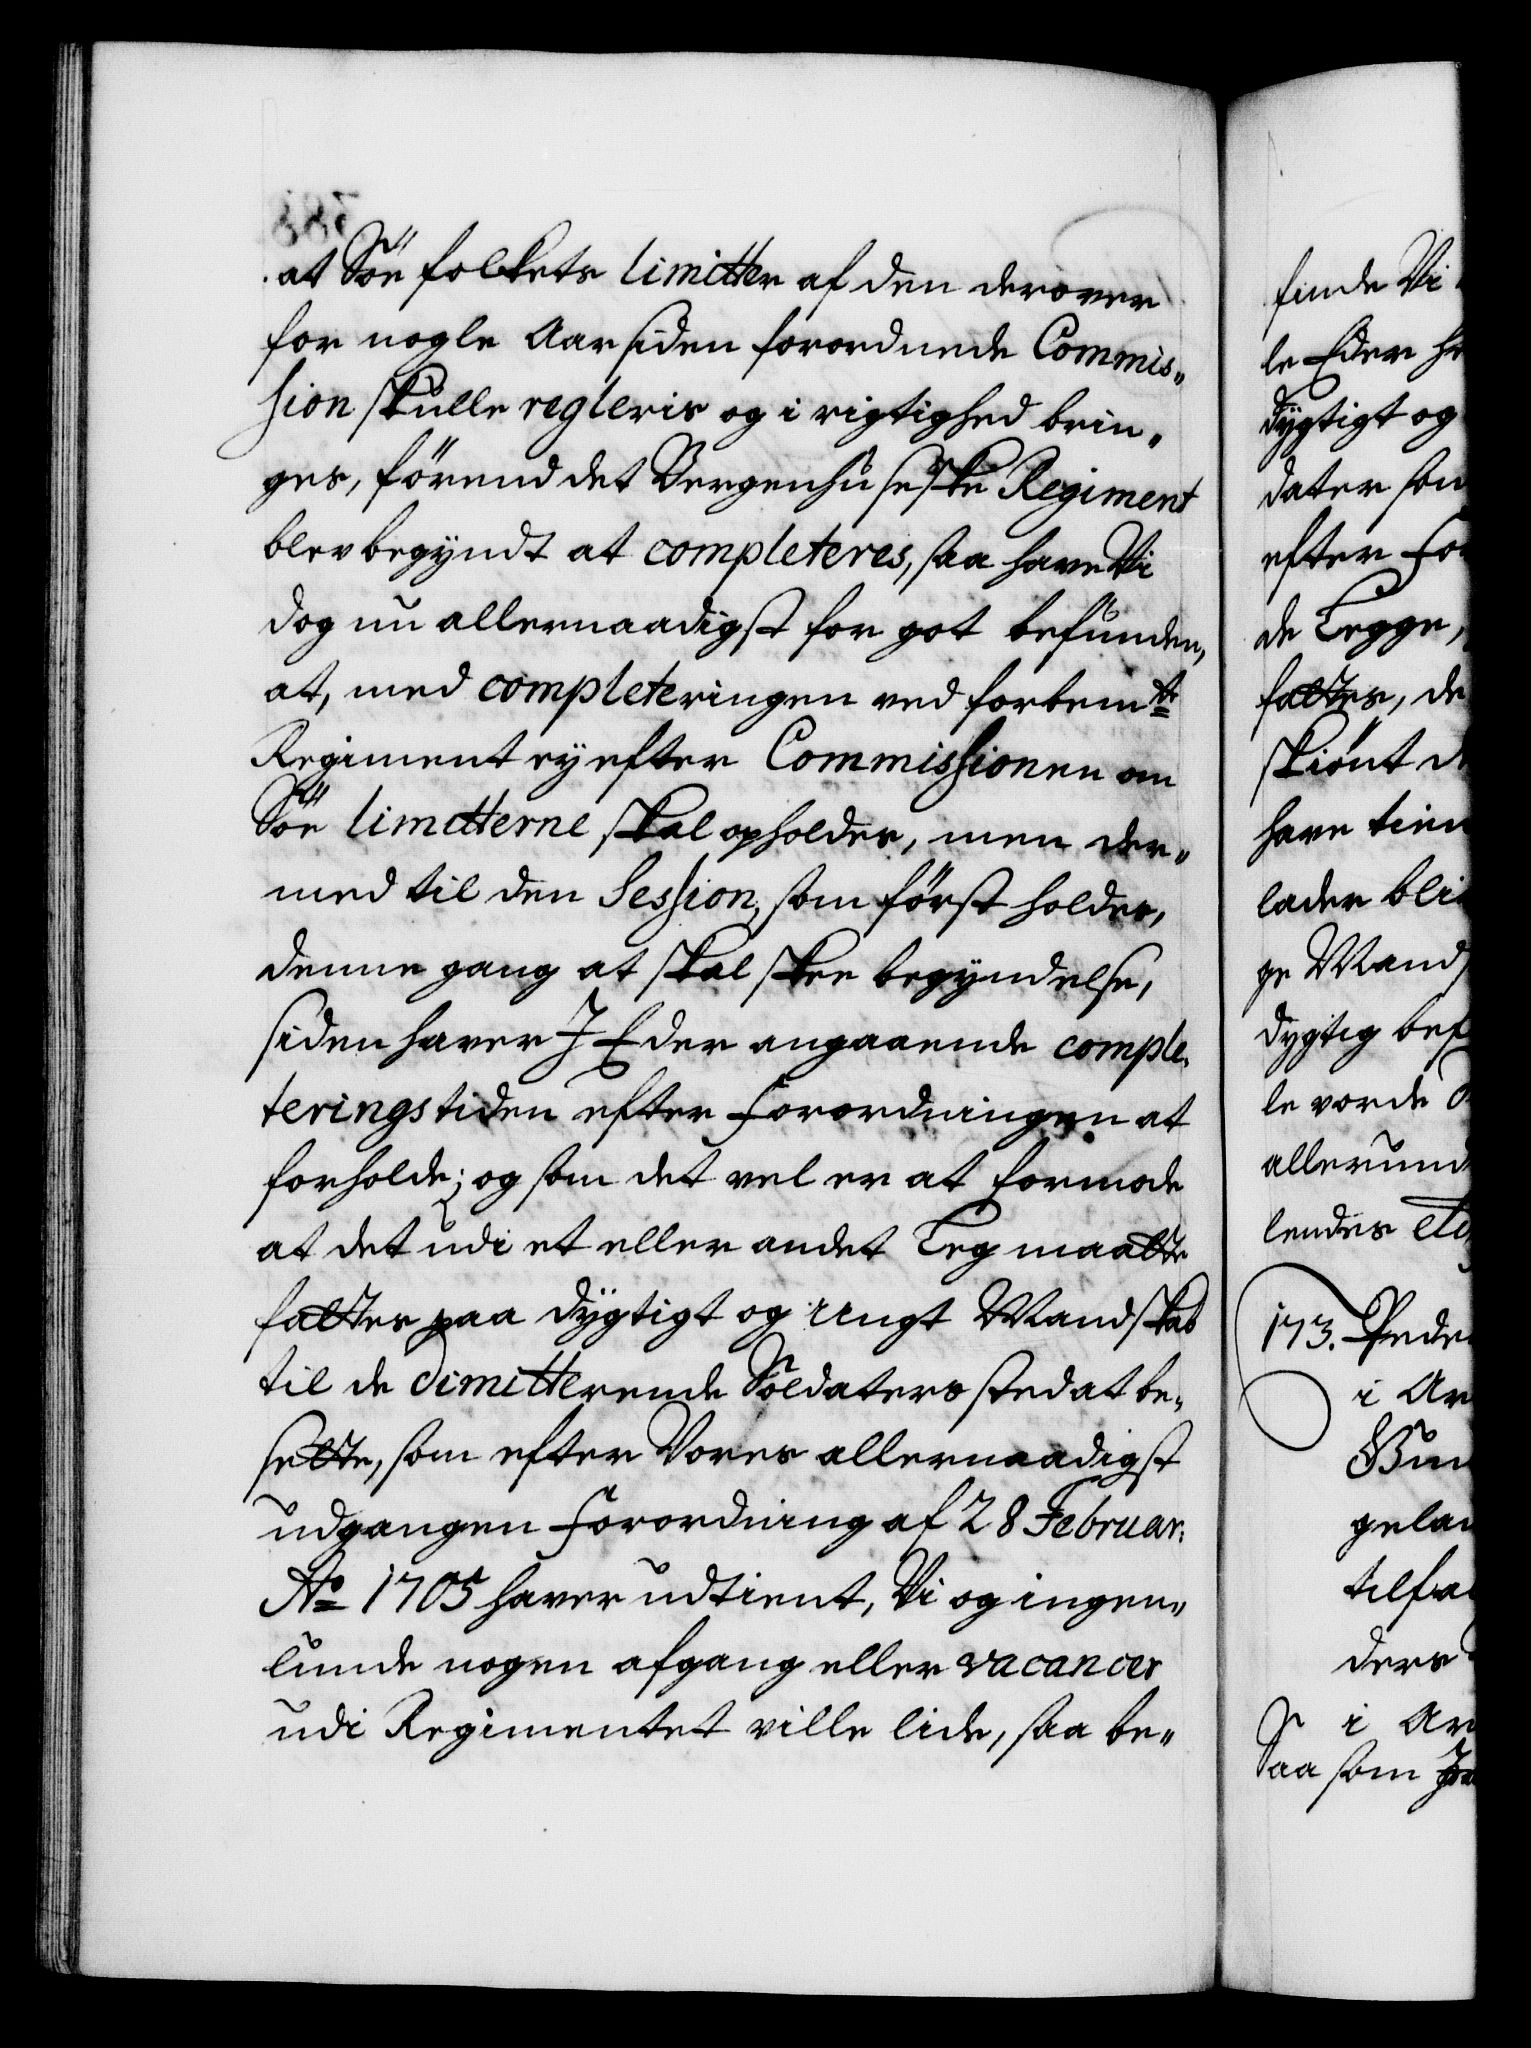 at Söe folkets limitter af den derover
for nogle Aar siden forordnede Commis„
sion skulle regleris og i rigtighed brin„
ges, förend det Bergenhusiske Regiment
blev begyndt at completeres, saa have Vi
dog nu allernaadigst for got befunden,
at, med completeringen ved forbemte
Regiment ey efter Commissionen om
Söe limitterne skal opholdes, men der„
med til den Session, som först holdes,
denne gang at skal skee begyndelse,
siden haver J Eder angaaende comple„
terings tiden efter Forordningen at
forholde; og som det vel er at formode
at det udi et eller andet Leg maatte
fattes paa dygtigt og ungt Mandskab
til de dimitterende Soldaters sted at be„
sette, som efter Vores allernaadigst
udgangen Forordning af 28 Februar:
Ao 1705 haver udtient, Vi og ingen„
lunde nogen afgang eller vacancer
udi Regimentet ville lide, saa be„
finde Vi
le Eder
dygtigt og
dater som
efter
de Legge,
fattes, de
skiönt
have
lader
ge Mand
dygtig
le vorde
lendes
173. Peder
i
i
Saa som